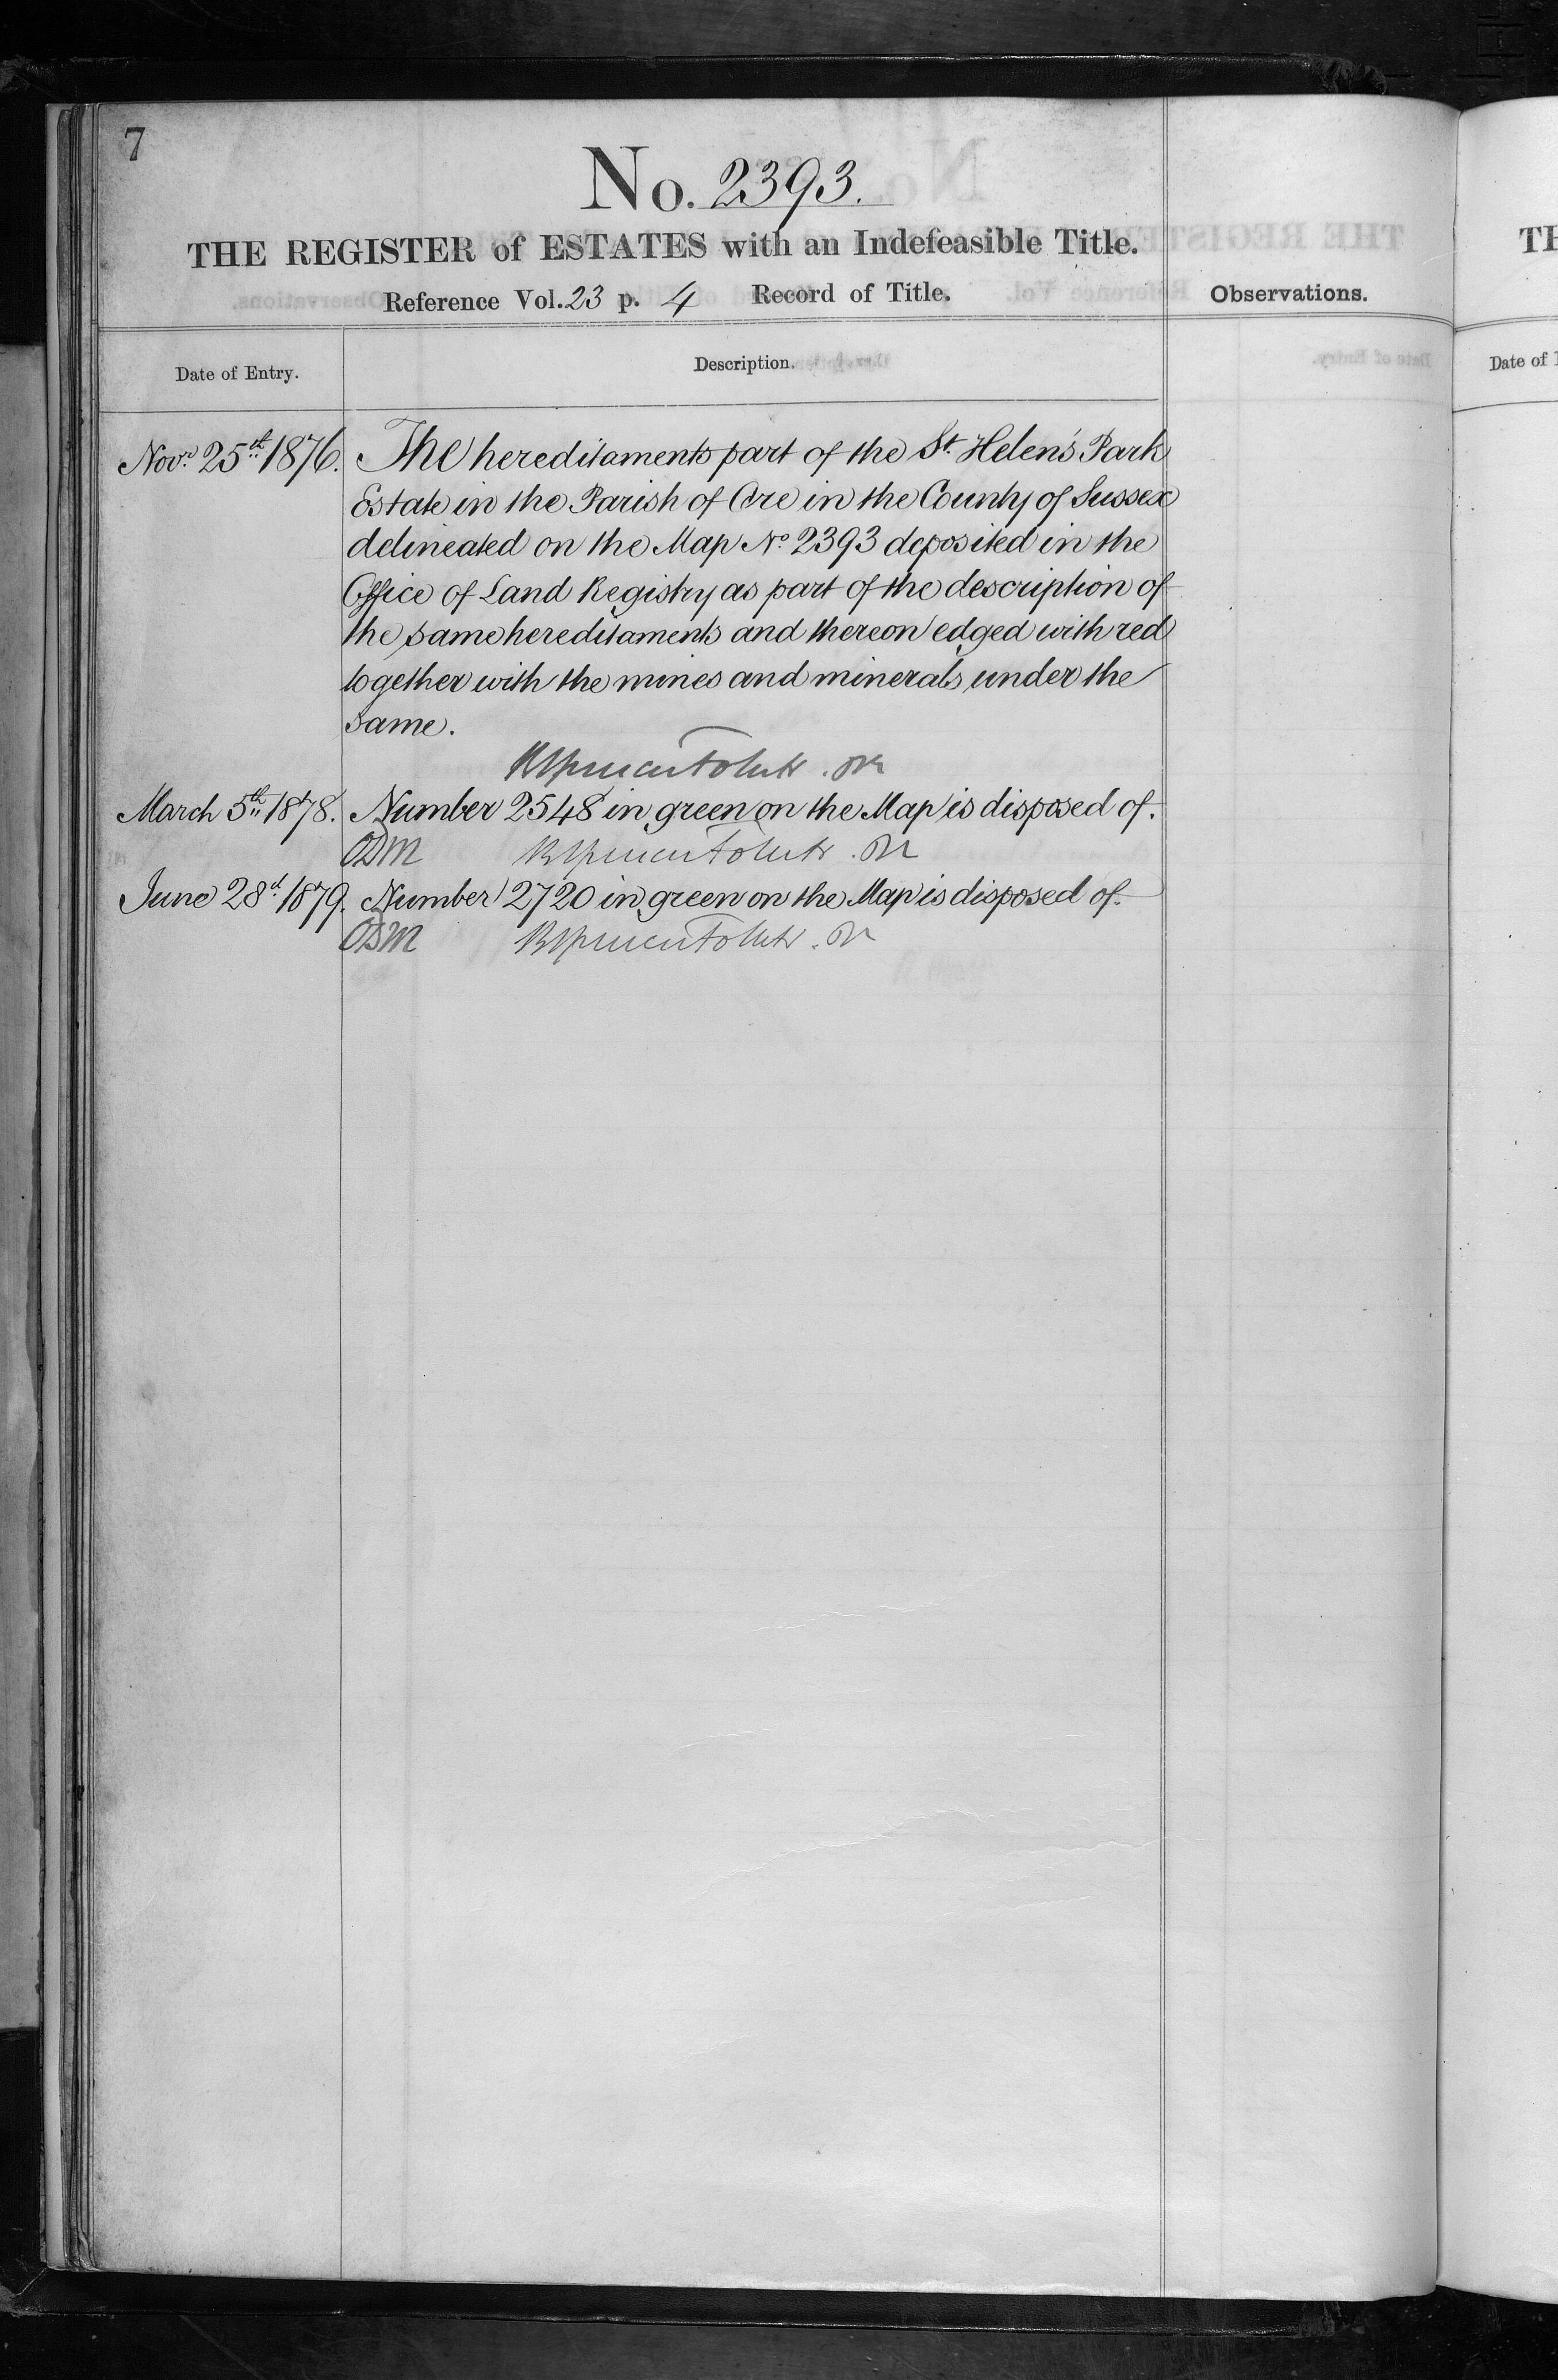 7
No. 2393.
THE REGISTER of ESTATES with an Indefeasible Title.
Reference Vol. 23 p. 4 Record of Title.
Observations.
Date of Entry.
Description.
Novr 25th 1876. The hereditaments part of the St. Helen's Park
Estate in the Parish of Ore in the County of Sussex
delineated on the Map No. 2393 deposited in the
Office of Land Registry as part of the description of
the same hereditaments and thereon edged with red
together with the mines and minerals under the
same.
March 5th 1878. Number 2548 in green on the Map is disposed of.
June 28th 1879. Number 2720 in green on the Map is disposed of.
Date of